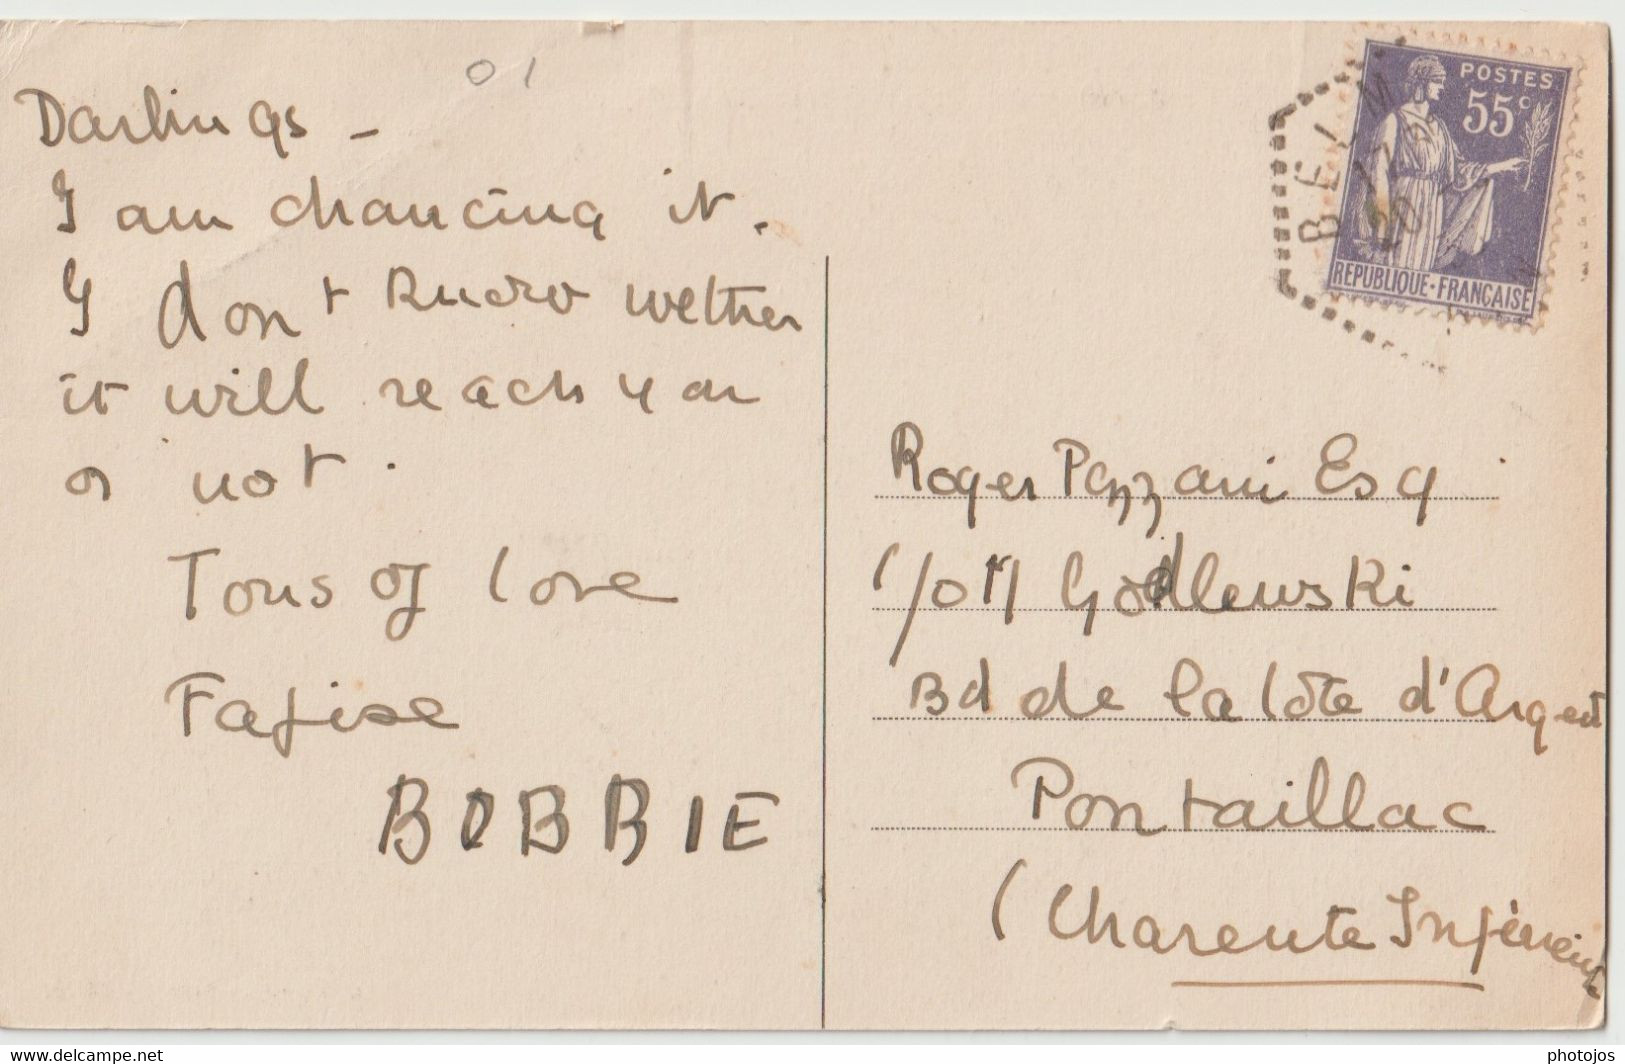 01
Darlings -
I am chancing it.
I don't know wether
it will reach you
or not.
Tons of love
BOBBIE
POSTES
55c
REPUBLIQUE·FRANÇAISE
Roger Pazzani Esq
c/o M Godlewski
Bd de la Côte d'Argent
Pontaillac
(Charente Inférieure
www.delcampe.net
photojos